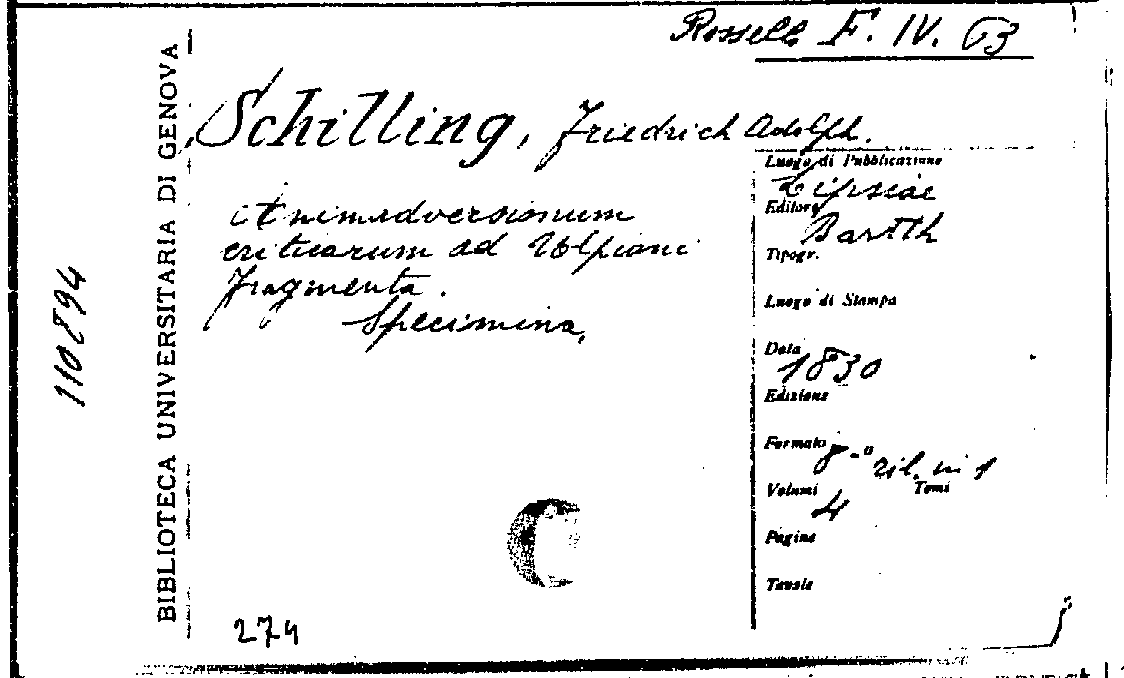 Rossell. F. IV. 63
Schilling, Friedrich Adolph.
Animadversionum
criticarum ad Ulpiani
fragmenta.
Specimina,
Luogo di Pubblicazione
Lipsiae
Editore
Barth
Tipogr.
Luogo di Stampa
Data
1830
Edizione
Formato 8.° ril. in 1
Volumi 4 Tomi
Pagine
Tavole
BIBLIOTECA UNIVERSITARIA DI GENOVA
110894
274
C